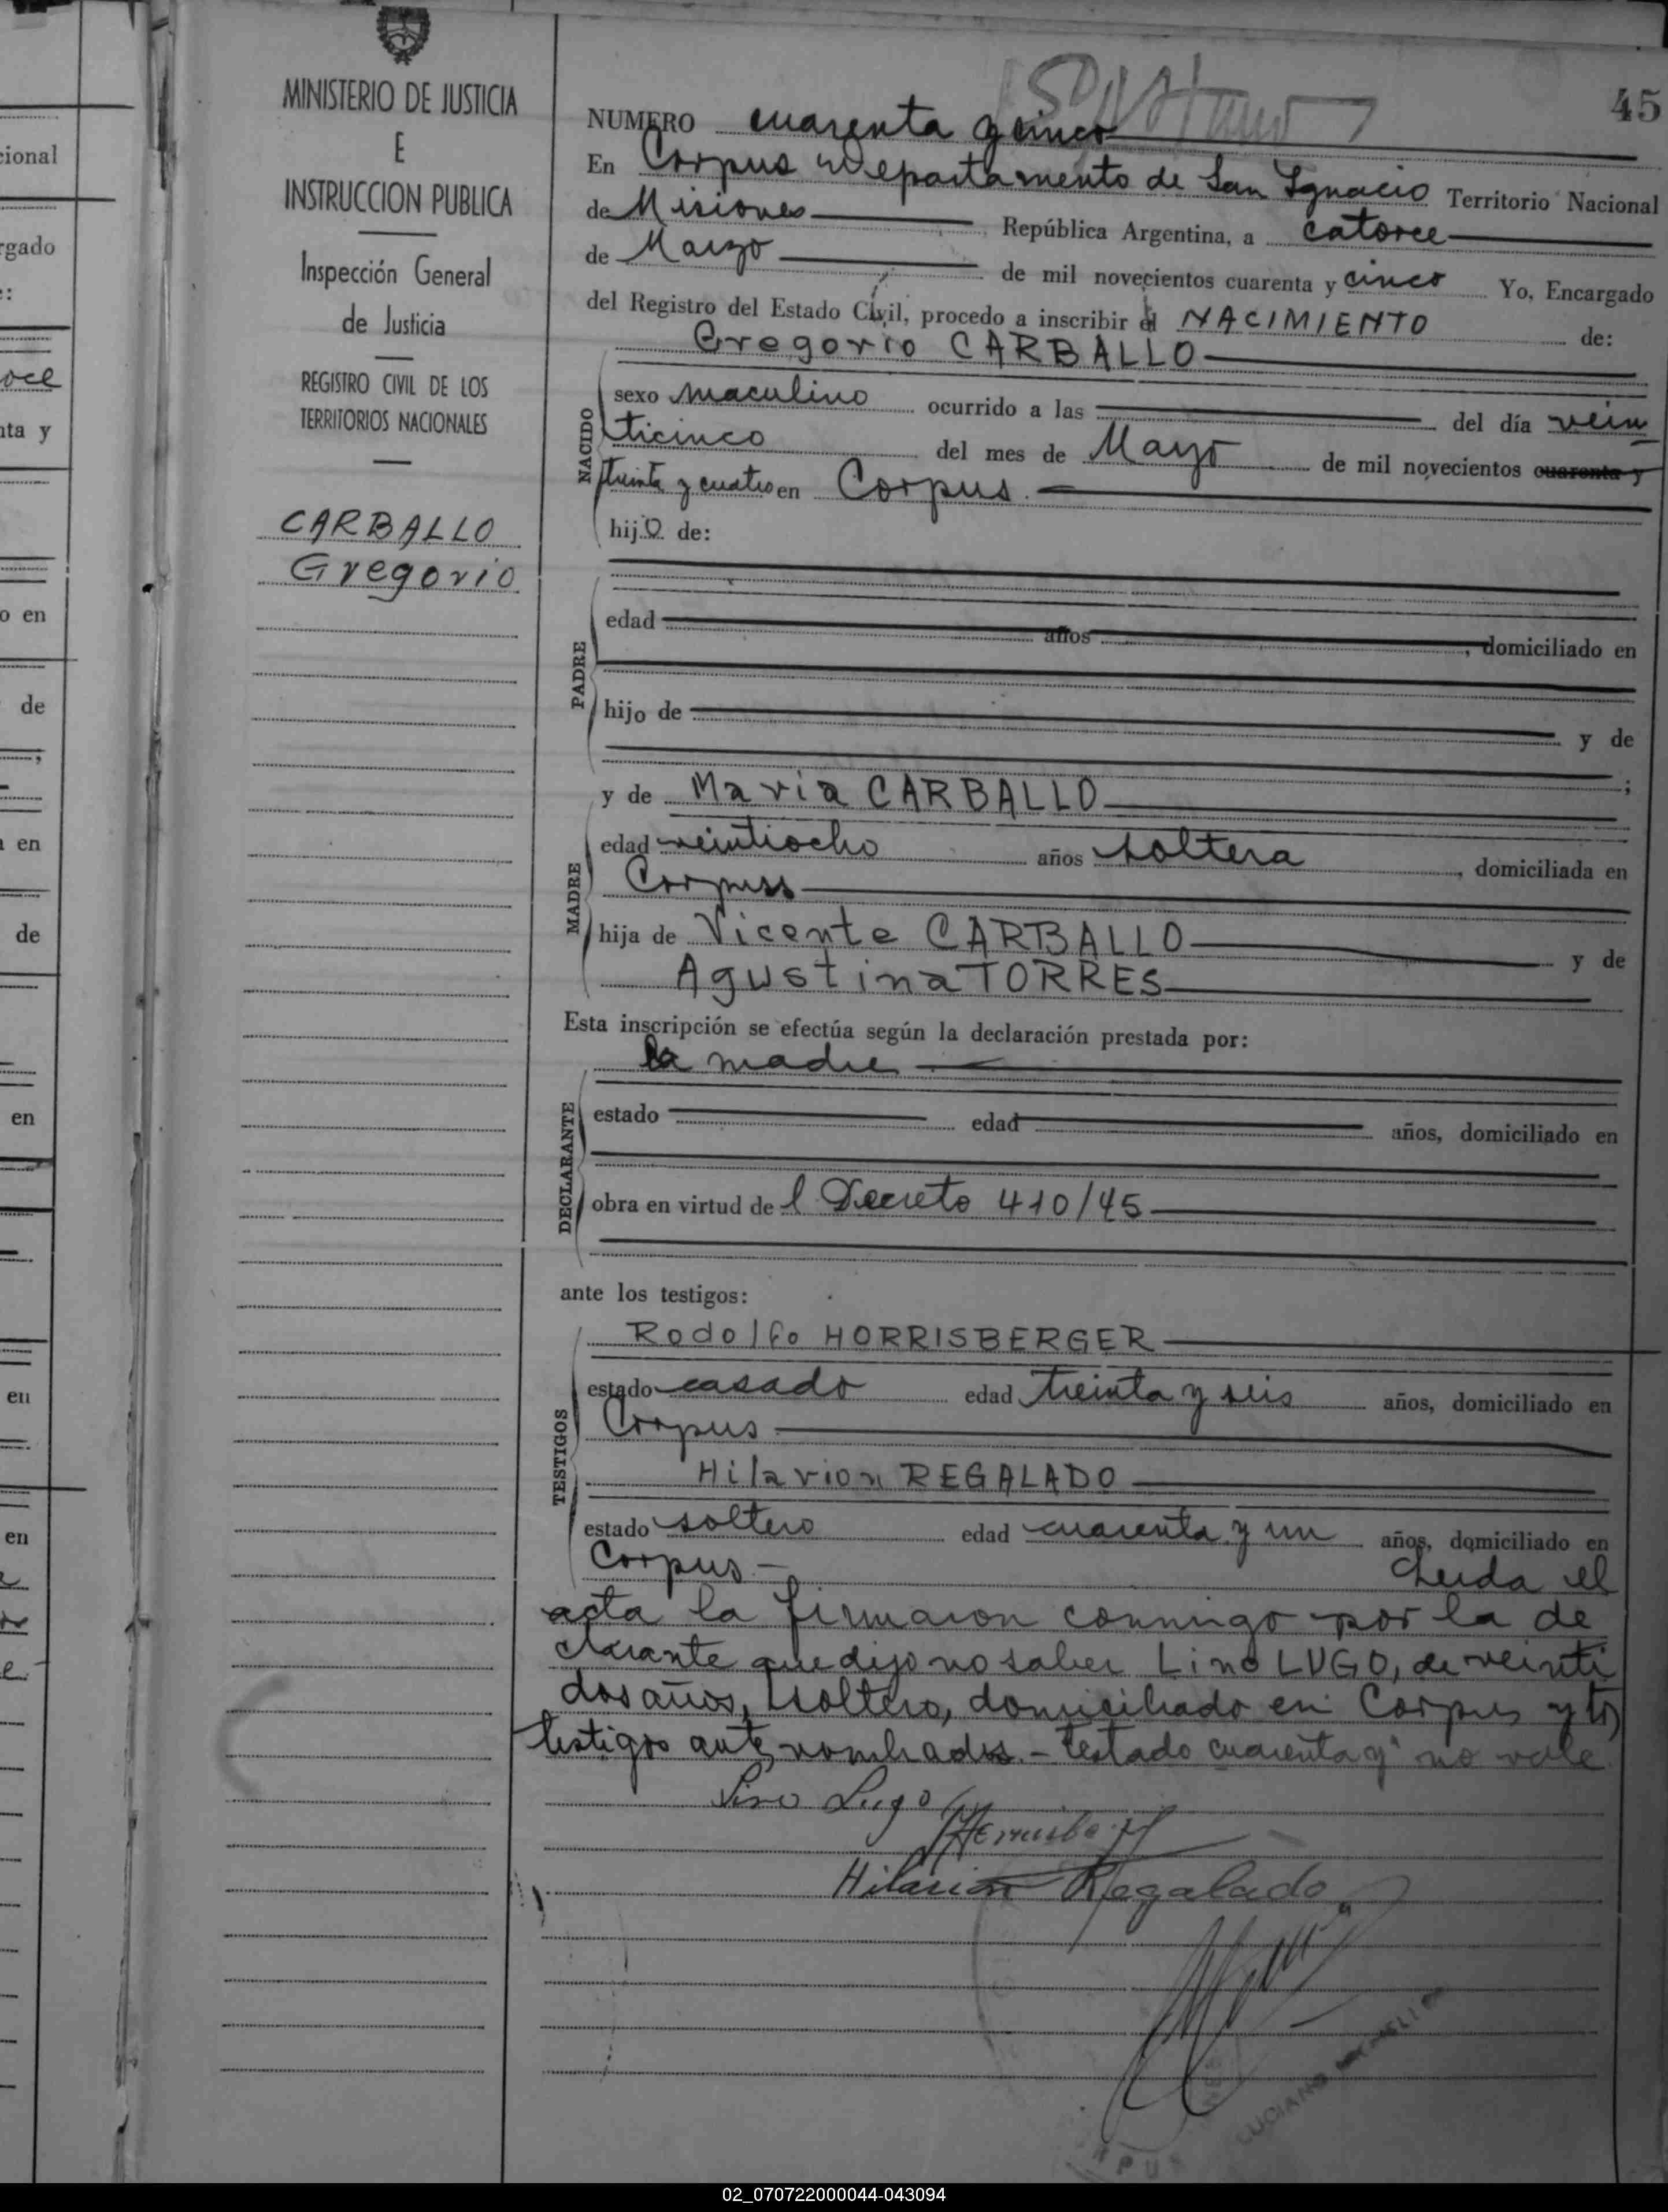 45
MINISTERIO DE JUSTICIA
E
INSTRUCCION PUBLICA
Inspección General
de Justicia
REGISTRO CIVIL DE LOS
TERRITORIOS NACIONALES
CARBALLO
Gregorio
NUMERO cuarenta y cinco
En Corpus Departamento de San Ignacio Territorio Nacional
de Misiones República Argentina, a catorce
de Marzo de mil novecientos cuarenta y cinco Yo, Encargado
del Registro del Estado Civil, procedo a inscribir el NACIMIENTO de:
Gregorio CARBALLO
NACIDO
sexo masculino ocurrido a las del día vein
ticinco del mes de Mayo de mil novecientos cuarenta y
treinta y cuatro en Corpus.
hijo de:
PADRE
edad años , domiciliado en
hijo de y de
;
MADRE
y de Maria CARBALLO
edad veintiocho años soltera , domiciliada en
Corpus
hija de Vicente CARBALLO y de
Agustina TORRES
Esta inscripción se efectúa según la declaración prestada por:
la madre
DECLARANTE
estado edad años, domiciliado en
obra en virtud de l Decreto 410/45
ante los testigos:
TESTIGOS
Rodolfo HORRISBERGER
estado casado edad treinta y seis años, domiciliado en
Corpus
Hilarion REGALADO
estado soltero edad cuarenta y un años, domiciliado en
Corpus - Leida el
acta la firmaron conmigo por la de
clarante que dijo no saber Lino LUGO, de veinti
dos años, soltero, domiciliado en Corpus y los
testigos ante nombrados. - Testado cuarenta y no vale
Lino Lugo
Hilarion Regalado
LUCIANO
02_070722000044-043094